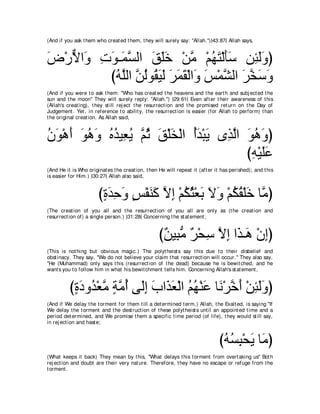 (And if you ask them who created them, they will surely say: "Allah.'')(43:87) Allah says,
﴿وَلَئِن سَأَلْتَهُمْ مَّنْ خَلَقَ السَّمَـوَتِ وَالاٌّرْضَ
وَسَخَّرَ الشَّمْسَ وَالْقَمَرَ لَيَقُولُنَّ اللَّهُ﴾
(And if you were to ask them: "Who has created the heavens and the earth and subjected the
sun and the moon'' They will surely reply: "Allah.'') (29:61) Even after their awareness of this
(Allah's creating), they still reject the resurrection and the promised return on the Day of
Judgement. Yet, in reference to ability, the resurrection is easier (for Allah to perform) than
the original creation. As Allah said,
﴿وَهُوَ الَّذِى يَبْدَأُ الْخَلْقَ ثُمَّ يُعِيدُهُ وَهُوَ أَهْوَنُ
عَلَيْهِ﴾
(And He it is Who originates the creation, then He will repeat it (after it has perished); and this
is easier for Him.) (30:27) Allah also said,
﴿مَّا خَلْقُكُمْ وَلاَ بَعْثُكُمْ إِلاَّ كَنَفْسٍ وَحِدَةٍ﴾
(The creation of you all and the resurrection of you all are only as (the creation and
resurrection of) a single person.) (31:28) Concerning the statement,
﴿إِنْ هَـذَا إِلاَّ سِحْرٌ مُّبِينٌ﴾
(This is nothing but obvious magic.) The polytheists say this due to their disbelief and
obstinacy. They say, "We do not believe your claim that resurrection will occur.'' They also say,
"He (Muhammad) only says this (resurrection of the dead) because he is bewitched, and he
wants you to follow him in what his bewitchment tells him. Concerning Allah's statement,
﴿وَلَئِنْ أَخَّرْنَا عَنْهُمُ الْعَذَابَ إِلَى أُمَّةٍ مَّعْدُودَةٍ﴾
(And if We delay the torment for them till a determined term,) Allah, the Exalted, is saying "If
We delay the torment and the destruction of these polytheists until an appointed time and a
period determined, and We promise them a specific time period (of life), they would still say,
in rejection and haste;
﴿مَا يَحْبِسُهُ﴾
(What keeps it back) They mean by this, "What delays this torment from overtaking us'' Both
rejection and doubt are their very nature. Therefore, they have no escape or refuge from the
torment.